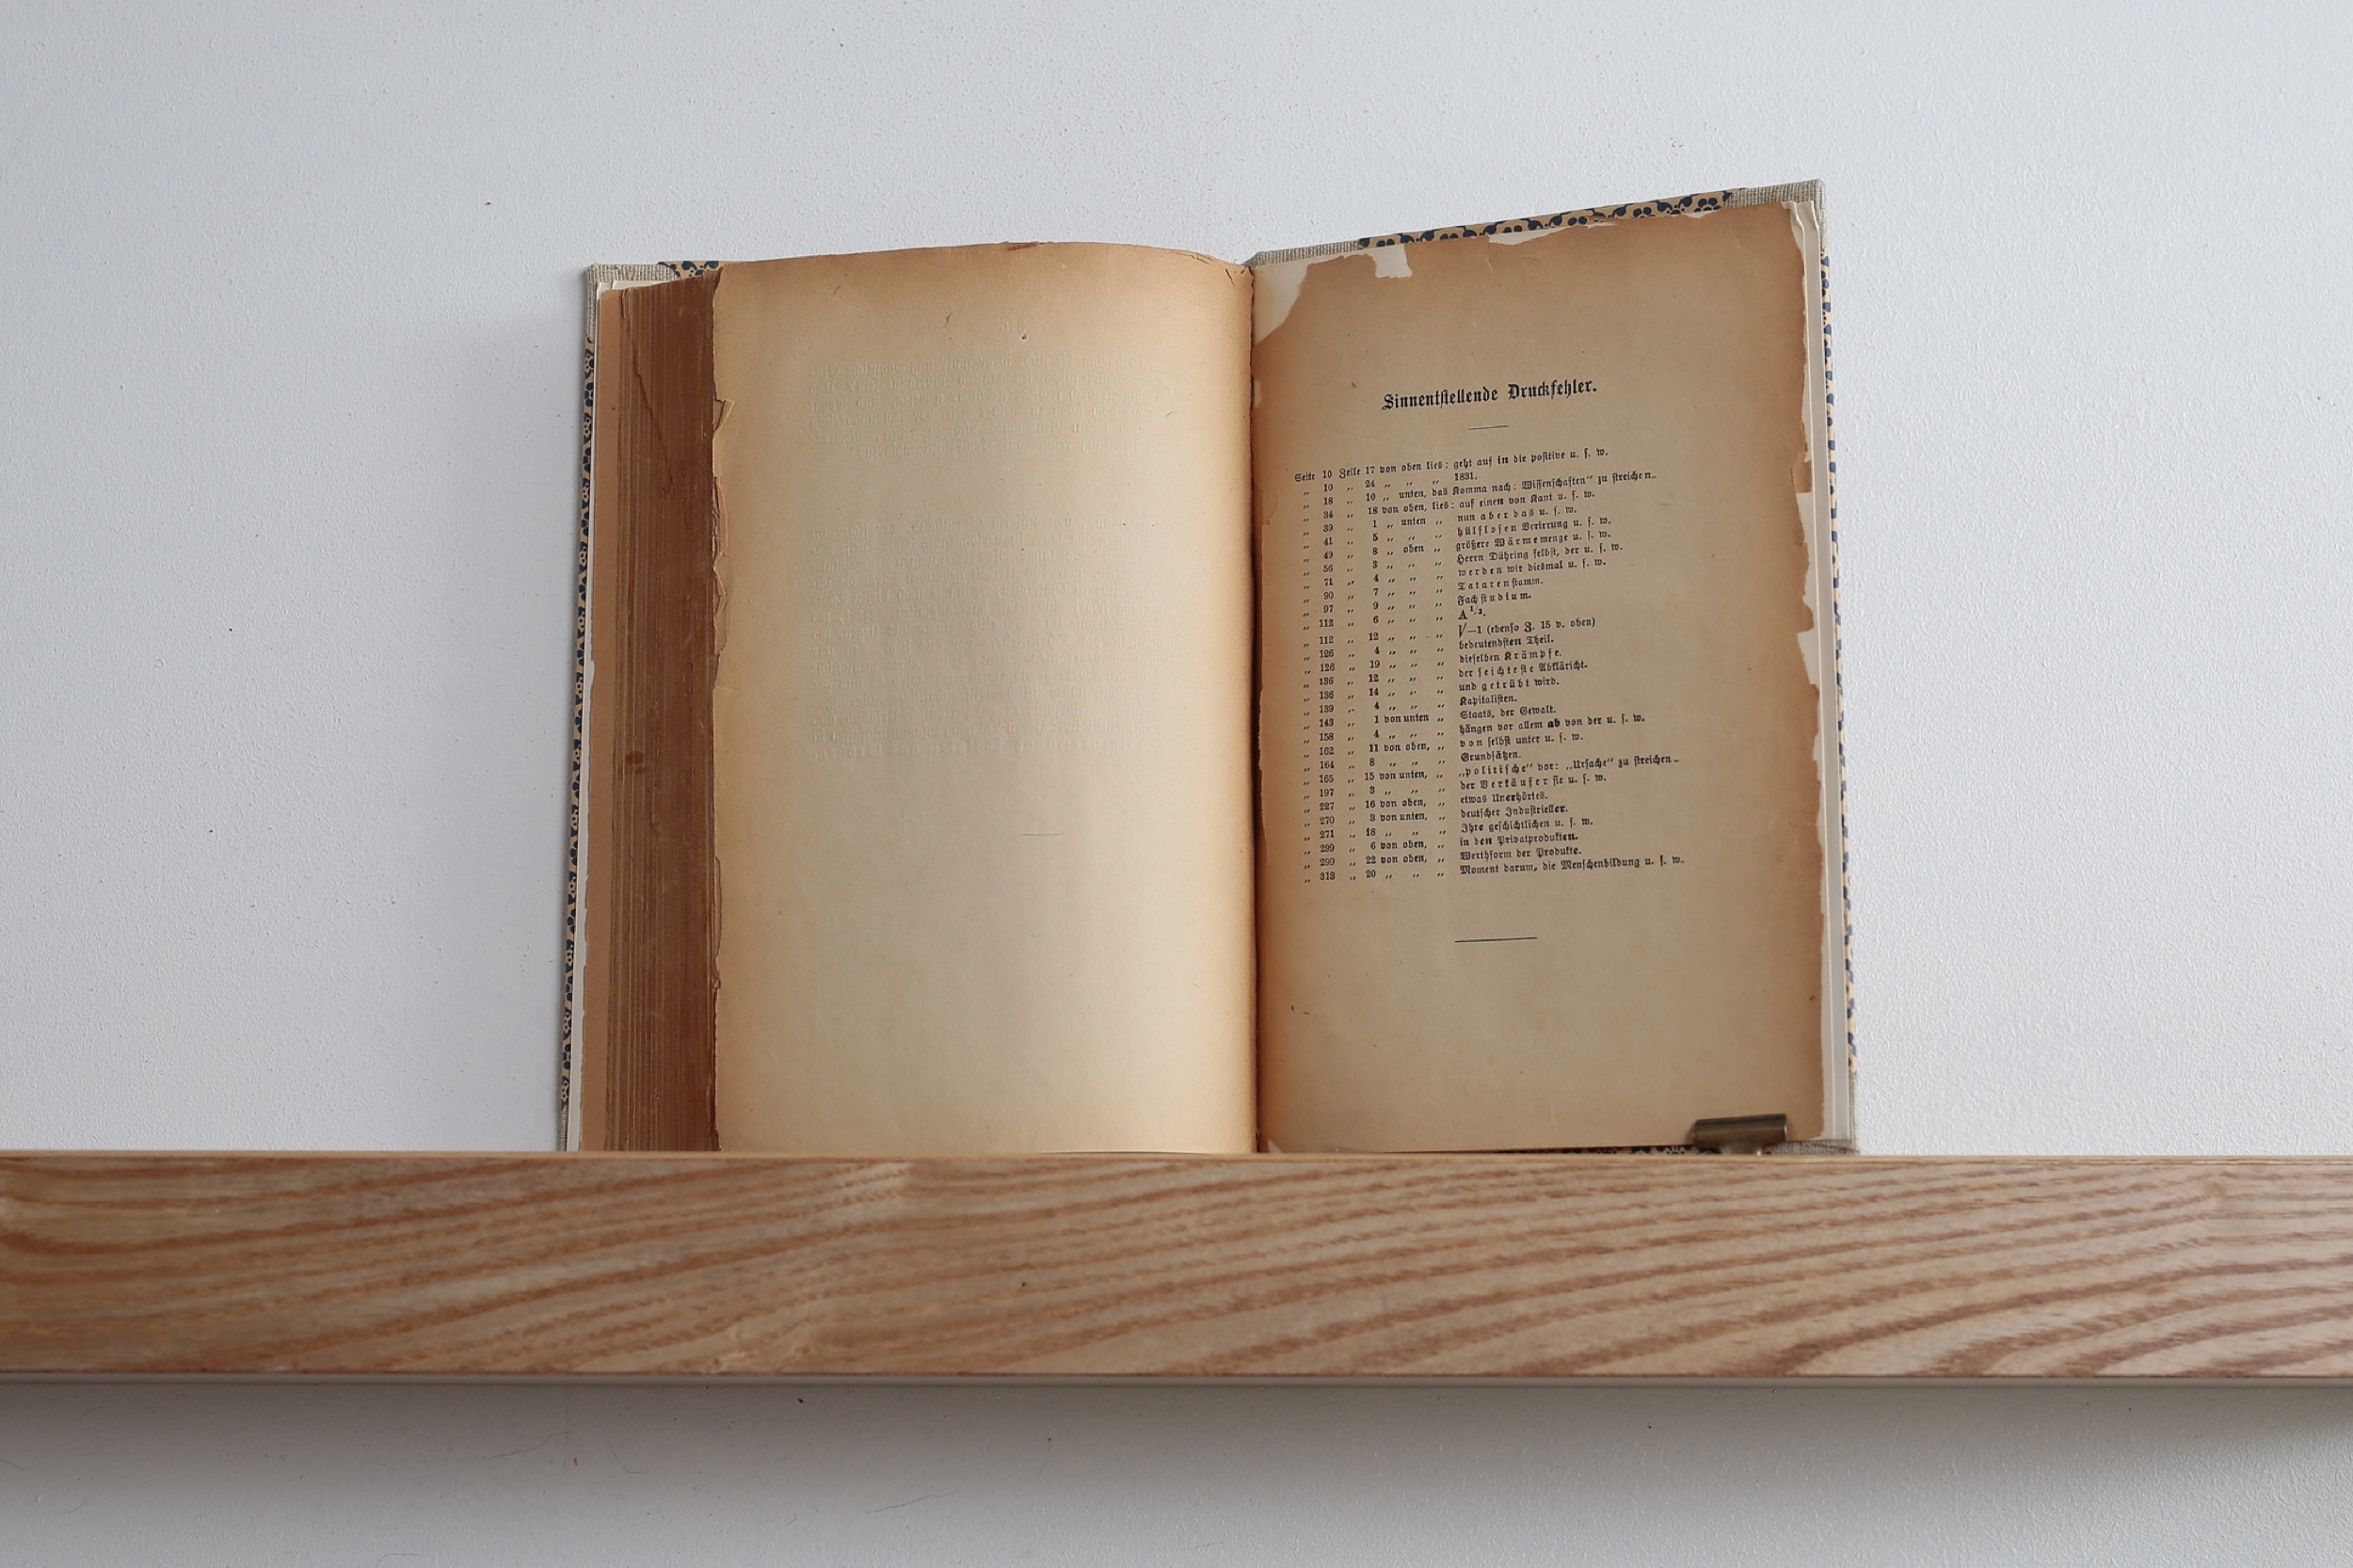 Sinnentstellende Druckfehler.
Seite 10 Zeile 17 von oben lies: geht auf in die positive u. s. w.
„ 10 „ 24 „ „ „ 1831.
„ 18 „ 10 „ unten, das Komma nach: Wissenschaften“ zu streichen.
„ 34 „ 18 von oben, lies: auf einen von Kant u. s. w.
„ 39 „ 1 „ unten „ nun aber das u. s. w.
„ 41 „ 5 „ „ „ hülflosen Verirrung u. s. w.
„ 49 „ 8 „ oben „ größere Wärmemenge u. s. w.
„ 56 „ 3 „ „ „ Herrn Dühring selbst, der u. s. w.
„ 71 „ 4 „ „ „ werden wir diesmal u. s. w.
„ 90 „ 7 „ „ „ Tatarenstamm.
„ 97 „ 9 „ „ „ Fachstudium.
„ 112 „ 6 „ „ „ A¹/².
„ 112 „ 12 „ „ „ √—1 (ebenso Z. 15 v. oben)
„ 126 „ 4 „ „ „ bedeutendsten Theil.
„ 126 „ 19 „ „ „ dieselben Krämpfe.
„ 136 „ 12 „ „ „ der seichteste Abkläricht.
„ 136 „ 14 „ „ „ und getrübt wird.
„ 139 „ 4 „ „ „ Kapitalisten.
„ 143 „ 1 von unten „ Staats, der Gewalt.
„ 158 „ 4 „ „ „ hängen vor allem ab von der u. s. w.
„ 162 „ 11 von oben, „ von selbst unter u. s. w.
„ 164 „ 8 „ „ „ Grundsätzen.
„ 165 „ 15 von unten, „ „politische“ vor: „Ursache“ zu streichen.
„ 197 „ 3 „ „ „ der Verkäufer sie u. s. w.
„ 227 „ 16 von oben, „ etwas Unerhörtes.
„ 270 „ 3 von unten, „ deutscher Industrieller.
„ 271 „ 18 „ „ „ Ihre geschichtlichen u. s. w.
„ 299 „ 6 von oben, „ in den Privatprodukten.
„ 299 „ 22 von oben, „ Werthform der Produkte.
„ 313 „ 20 „ „ „ Moment darum, die Menschenbildung u. s. w.